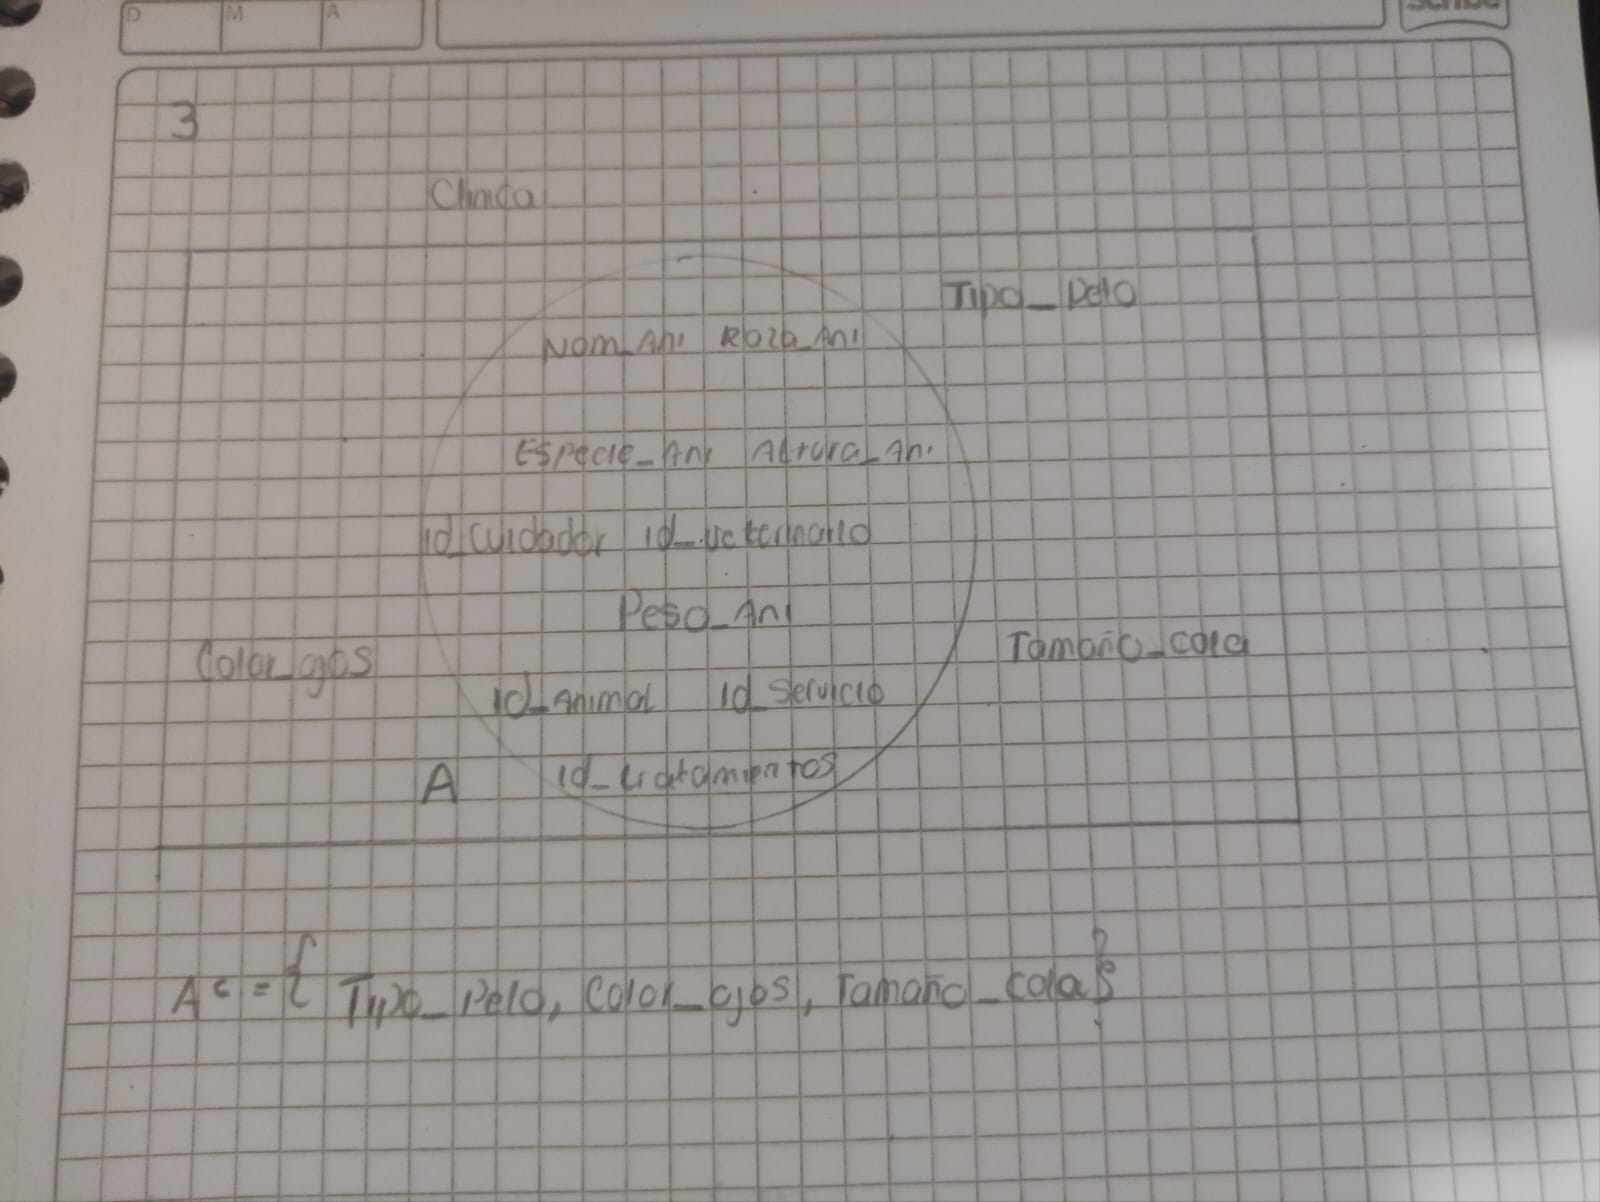 D M A
Scribe
3
Clinica
Tipo_Pelo
Nom_Ani Raza_Ani
Especie_Ani Altura_Ani
id_cuidador id_veterinario
Peso_Ani
Color_ojos Tamaño_cola
id_Animal id_Servicio
A id_tratamientos
A^c = { Tipo_Pelo, Color_ojos, Tamaño_cola}